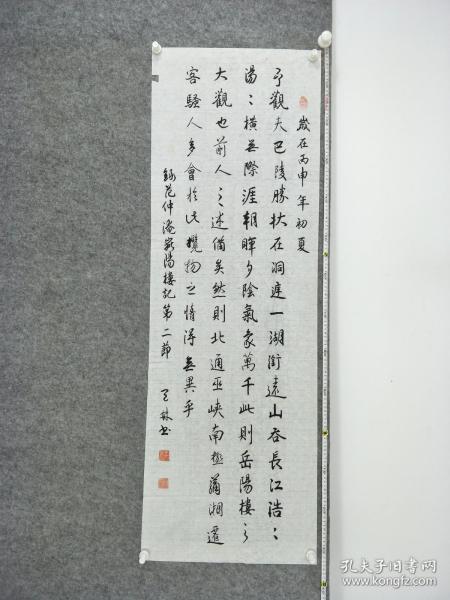 歲在丙申年初夏
予觀夫巴陵勝狀在洞庭一湖銜遠山吞長江浩〻
湯〻橫無際涯朝暉夕陰氣象萬千此則岳陽樓之
大觀也前人之述備矣然則北通巫峽南極瀟湘遷
客騷人多會於此攬物之情得無異乎
錄范仲淹岳陽樓記第二節
林書
孔夫子旧书网
www.kongfz.com